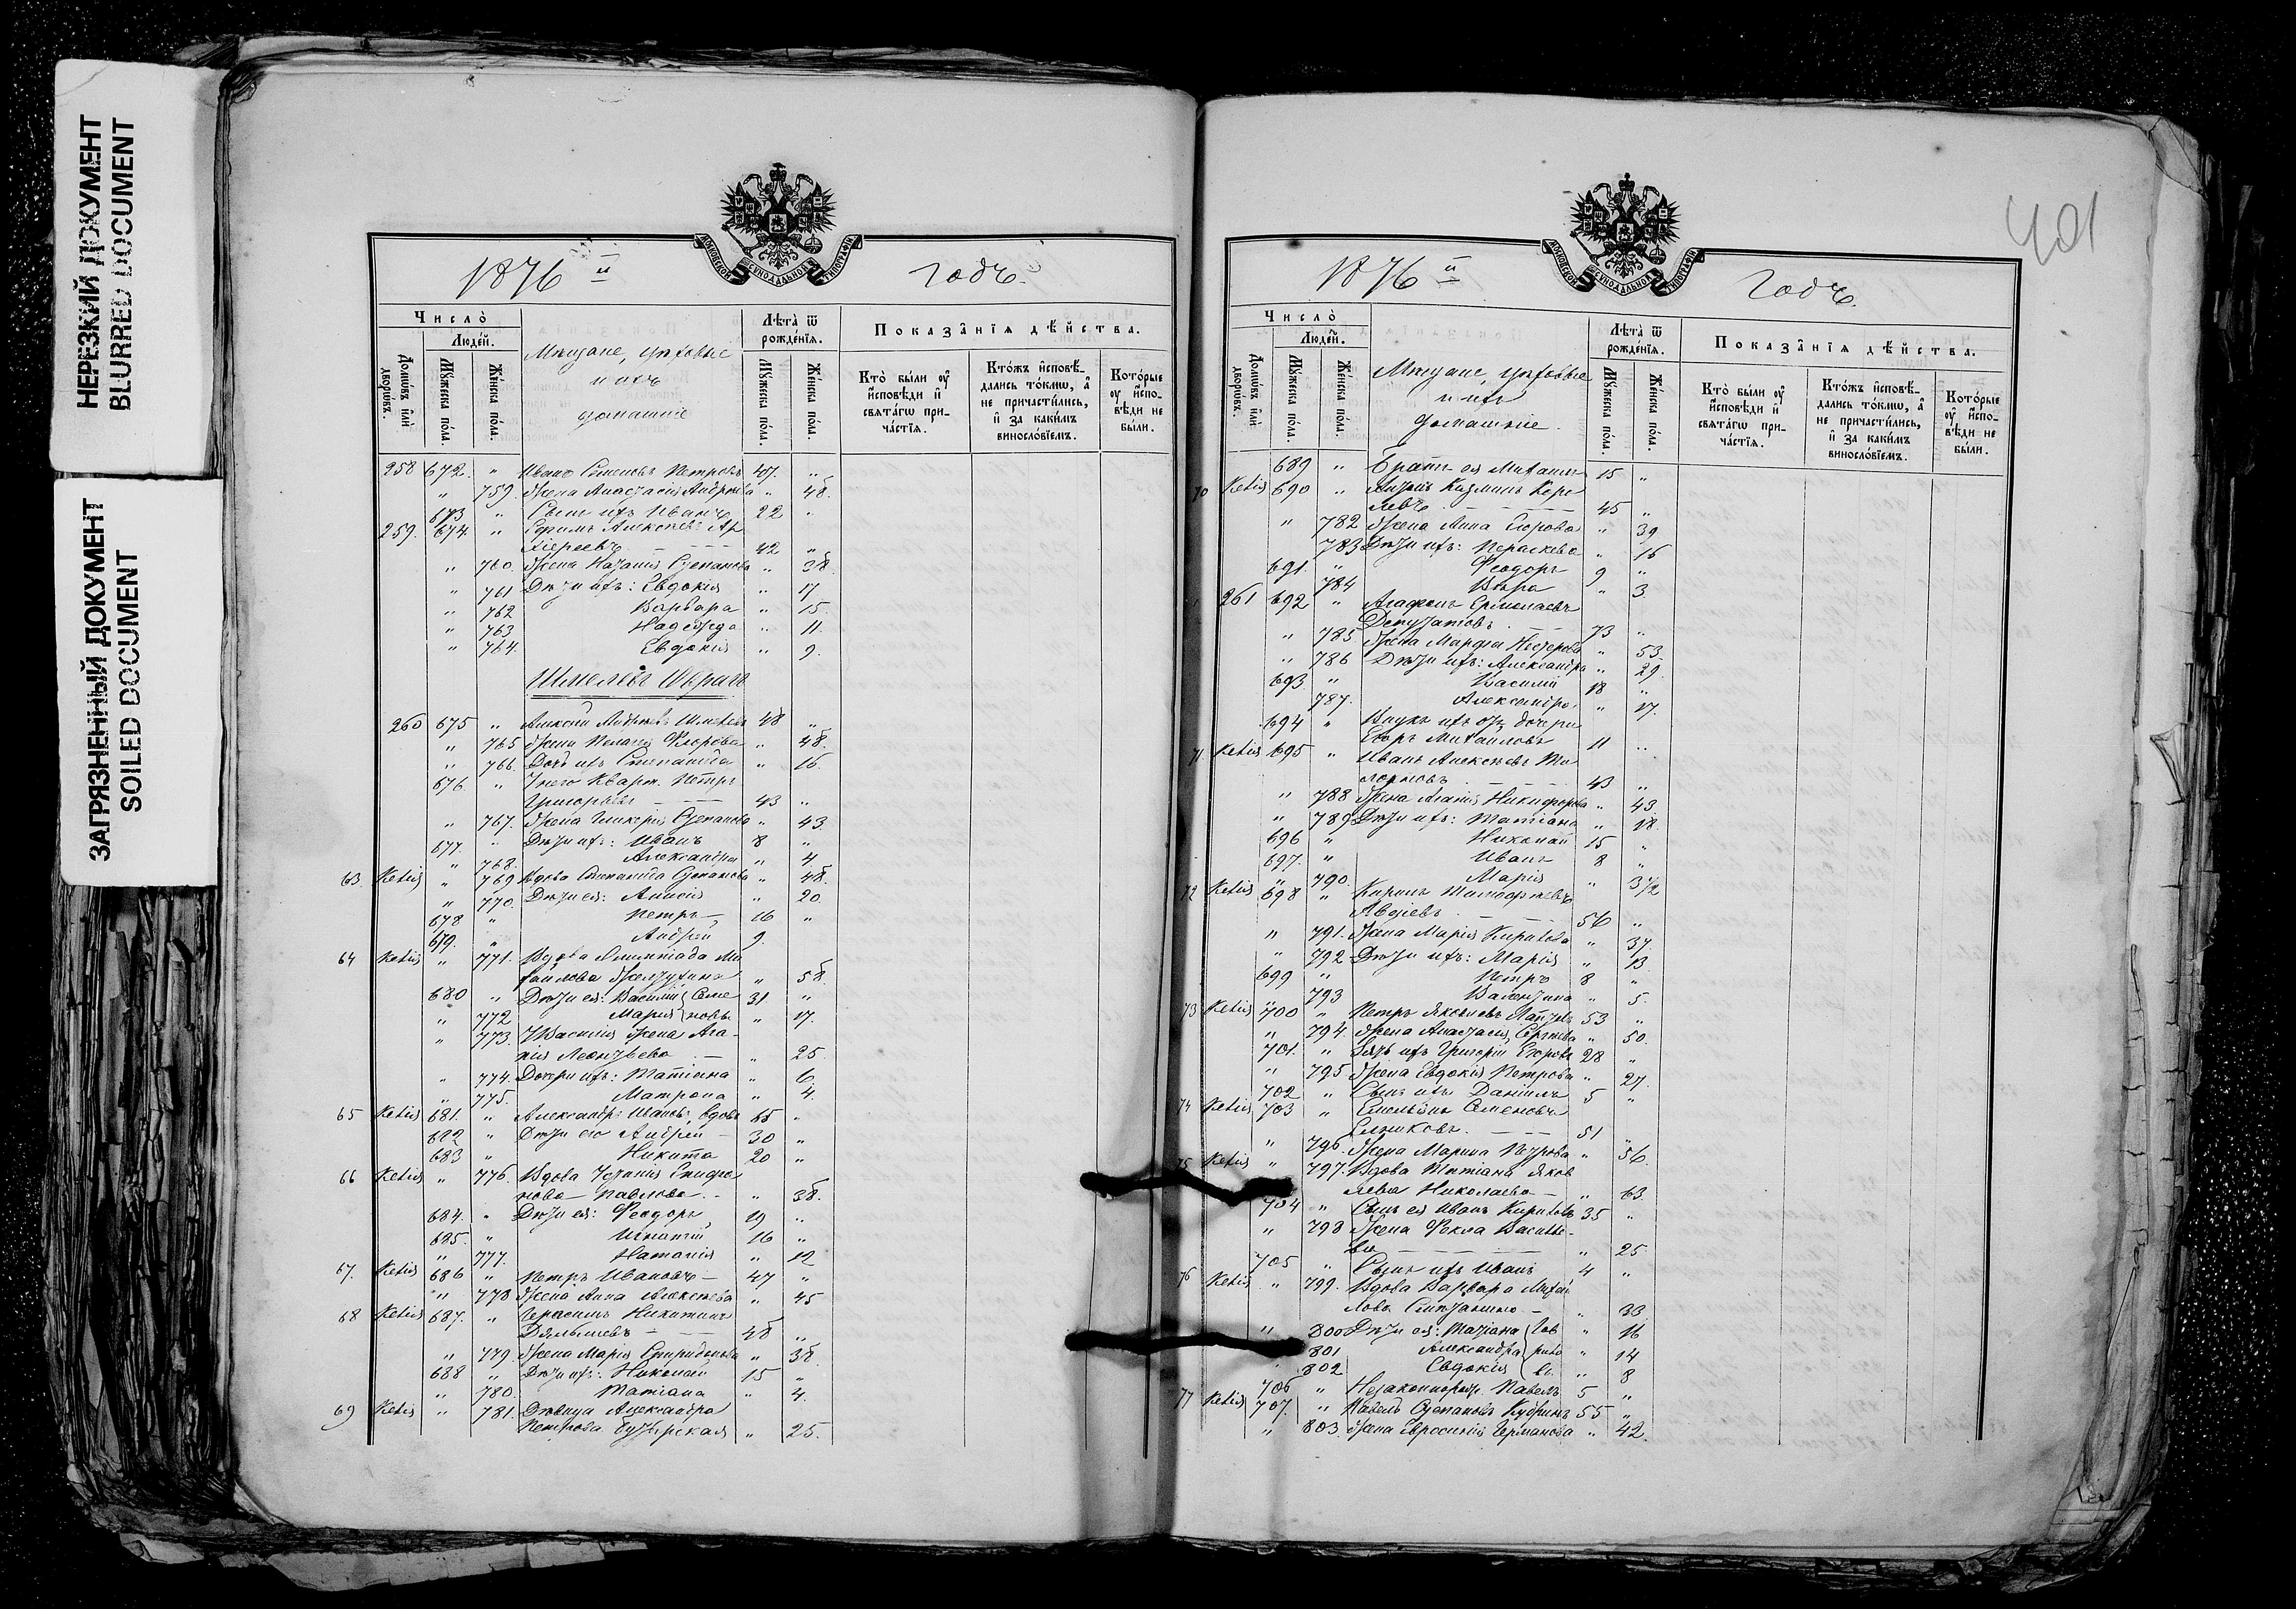 НЕРЕЗКИЙ ДОКУМЕНТ
BLURRED DOCUMENT
ЗАГРЯЗНЕННЫЙ ДОКУМЕНТ
SOILED DOCUMENT
МОСКОВСКОЙ СѴНОДАЛЬНОЙ ТИПОГРАФІИ
1876 й годъ.
Число̀
Людей.
Домѡвъ и҆лѝ дворѡвъ.
Мꙋжеска по́ла.
Же́нска по́ла.
Мѣщане, цеховые
и ихъ
домашніе
Лѣта̀ ѿ рожде́нїѧ.
Мꙋжеска по́ла.
Же́нска по́ла.
Показа̂нїѧ дѣ́йства.
Кто̀ бы́ли ᲂу҆ и҆сповѣди и҆ свѧта́гѡ причастїѧ.
Кто́жъ и҆сповѣдались то́кмѡ, а҆ не причасти́лись, и҆ за каки́мъ винословїемъ.
Кото́рые ᲂу҆ и҆сповѣди не бы́ли.
258 672 " Иванъ Семеновъ Петровъ 47. "
" 759. Жена Анастасія Андреева " 48.
673 " Сынъ ихъ Иванъ 22 "
259. 674. " Ефимъ Алексеевъ Ар
хіереевъ 42 "
" 760. Жена Наталія Степанова " 38.
" 761 Дѣти ихъ: Евдокія " 17
" 762 Варвара " 15.
" 763 Надежда " 11.
" 764. Евдокія " 9.
260 675 " Алексѣй Андреевъ 48 "
" 765 Жена Пелагія " 48.
" 766. Дочь ихъ Степанида " 16.
676. " У него кварт. Петръ
Григорьевъ 43 "
" 767. Жена Гликерія Степанова " 43.
677. " Дѣти ихъ: Иванъ 8 "
" 768. Александра " 4.
63. " 769 Вдова Степанида Степанова " 48.
" 770. Дѣти ея: " 20.
678 " Петръ 16 "
679. " Андрей 9.
64 " 771. Вдова Олимпіада Ми
хайлова " 58.
680 " Дѣти ея: Василій Семе 31 "
" 772 Марія новы " 17.
" 773. У Василія жена Ага-
пія Леонтьева " 25
" 774. Дочери ихъ: Татіана " 6.
" 775. Матрона " 4.
65 681. " Александръ Ивановъ, вдовъ 65 "
682 " Дѣти его Андрей 30 "
683 " Никита 20 "
66 " 776. Вдова Устинія
нова Павлова " 38.
684. " Дѣти ея: Феодоръ 19 "
685. " Игнатій 16 "
" 777. Наталія " 12
67. 686 " Петръ Ивановъ 47 "
" 778 Жена Анна Алексеева " 45
68 687. " Герасимъ Никитинъ
48 "
" 779. Жена Марія Спиридонова " 38.
688 " Дѣти ихъ: Николай 15 "
" 780. Татіана " 4.
69 " 781. Дѣвица Александра
Петрова " 25.
401
МОСКОВСКОЙ СѴНОДАЛЬНОЙ ТИПОГРАФІИ
1876 й Годъ.
Число̀
Людей.
Домѡвъ и҆лѝ дворѡвъ.
Мꙋжеска по́ла.
Же́нска по́ла.
Мѣщане, цеховые
и ихъ
домашніе.
Лѣта̀ ѿ рожде́нїѧ.
Мꙋжеска по́ла.
Же́нска по́ла.
Показа̂нїѧ дѣ́йства.
Кто̀ бы́ли ᲂу҆ и҆сповѣди и҆ свѧта́гѡ причастїѧ.
Кто́жъ и҆сповѣдались то́кмѡ, а҆ не причасти́лись, и҆ за каки́мъ винословїемъ.
Кото́рые ᲂу҆ и҆сповѣди не бы́ли.
689 " Братъ ея Михаилъ 15 "
70 690 " Кузминъ
45 "
" 782 Жена Анна Егорова " 39
783 Дѣти ихъ: Параскева " 16
691. " Феодоръ 9 "
784 Вѣра " 3
261 692 " Агафонъ Ермолаевъ
Депутатовъ 73 "
" 785. Жена Марфа Нестерова " 53.
" 786 Дѣти ихъ: Александра " 29.
693. " Василій 18 "
787. Александра " 17.
694 " Внукъ ихъ отъ дочери
Егоръ Михайловъ 11 "
71. 695 " Иванъ Алексеевъ
43 "
" 788 Жена Агапія Никифорова " 43.
" 789 Дѣти ихъ: Татіана " 18.
696 " Николай 15 "
697. " Иванъ 8 "
" 790. Марія " 3½
72 698 " Кирилъ Тимофеевъ
Авдіевъ 56 "
" 791. Жена Марія Кирилова " 37.
" 792 Дѣти ихъ: Марія " 13.
699 " Петръ 8 "
" 793 Валентина " 5.
73 700 " Петръ Яковлевъ 53 "
" 794. Жена Анастасія Сергеева " 50.
701. " Зять ихъ Григорій Егоровъ 28 "
" 795 Жена Евдокія Петрова " 27.
702 " Сынъ ихъ Даніилъ 5 "
74 703 " Емельянъ Семеновъ
51 "
" 796. Жена Марина Петрова " 56.
75 " 797. Вдова Татіана Яков
лева Николаева " 63.
704 " Сынъ ея Иванъ Кириловъ 35 "
" 798 Жена Фекла Василье-
ва " 25.
705 " Сынъ ихъ Иванъ 4 "
76 " 799. Вдова Варвара Михай
лова " 33.
" 800 Дѣти ея: Татіана Гав " 16
801 Александра рило " 14
802 Евдокія вы. " 8
706 " Незаконнорож. Павелъ 5 "
77 707. " Павелъ Степановъ 55 "
" 803. Жена Евросинія Германова " 42.